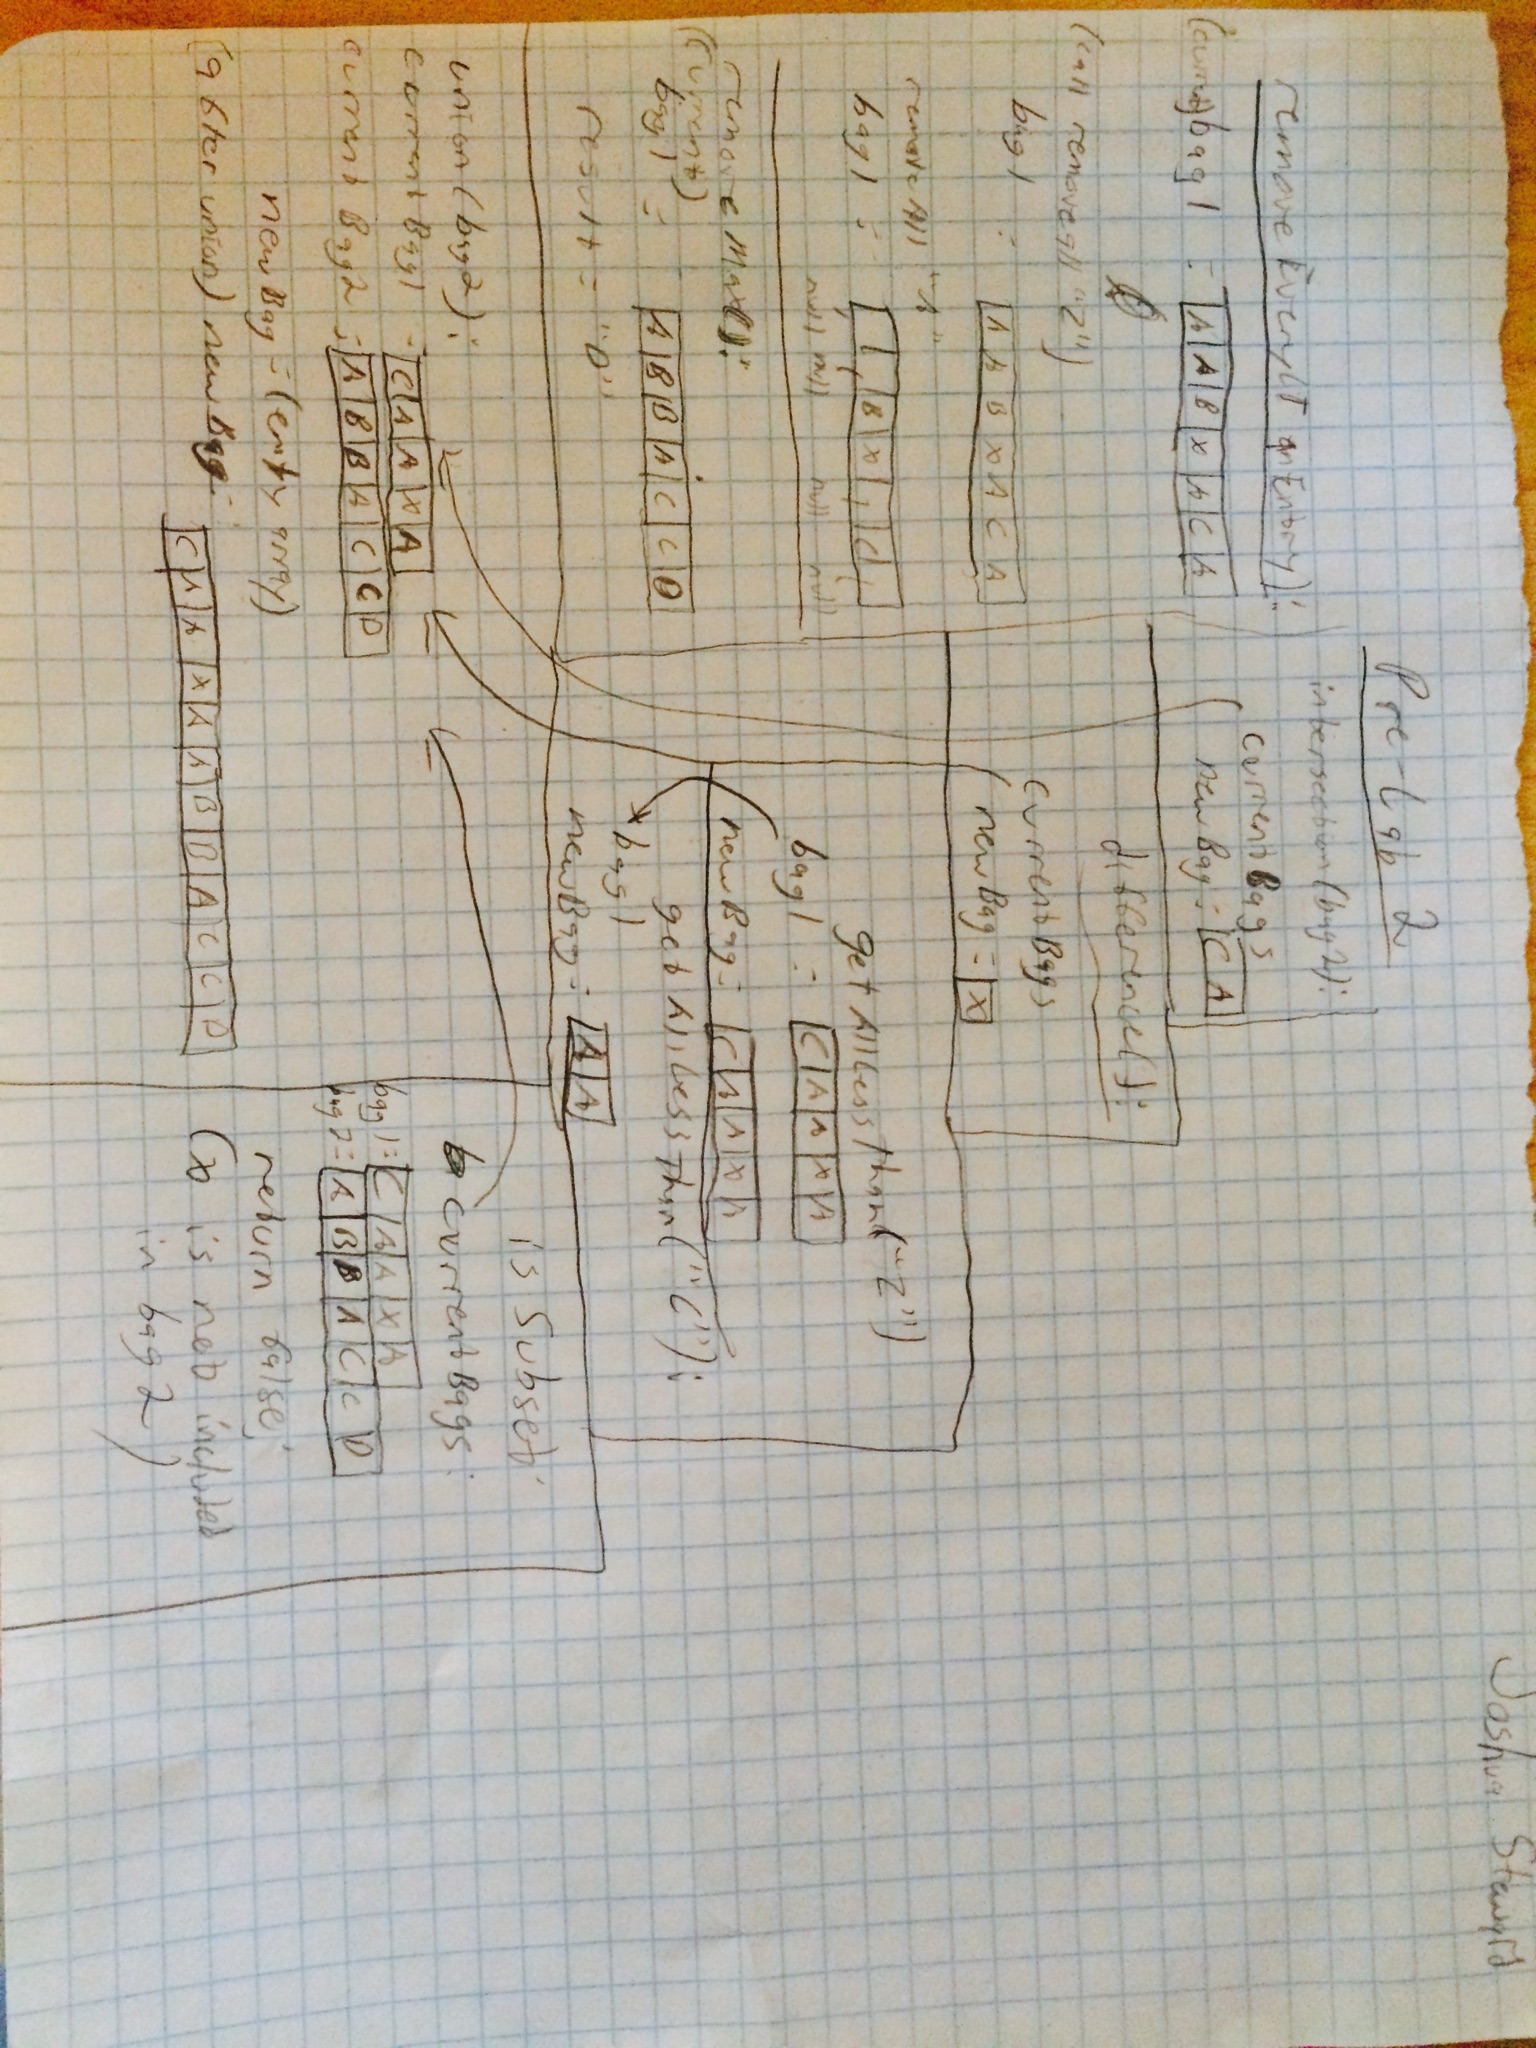 Joshua
Pre-lab 2
removeEvery(T anEntry):
(current) bag1 : A A B X A C A
(call removeall "Z")
bag1 : A A B X A C A
removeAll "A"
bag1 : B X C
null null null null
removeMax():
(current)
bag1 : A B B A C C D
result = "D"
union(bag2):
current Bag1 : C A A X A
current Bag2 : A B B A C C D
newBag = (emty array)
(after union) newBag : C A A X A A B B A C C D
intersection(bag2):
current Bags
newBag : C A
difference():
current Bags
newBag = X
getAllLessthan("Z")
bag1 : C A A X A
newBag : C A A X A
getAllLessThan("C"):
bag1
newBag : A A
is Subset:
currentBags:
bag1 = C A A X A
bag2 = A B B A C C D
return false;
(x is not included
in bag 2)